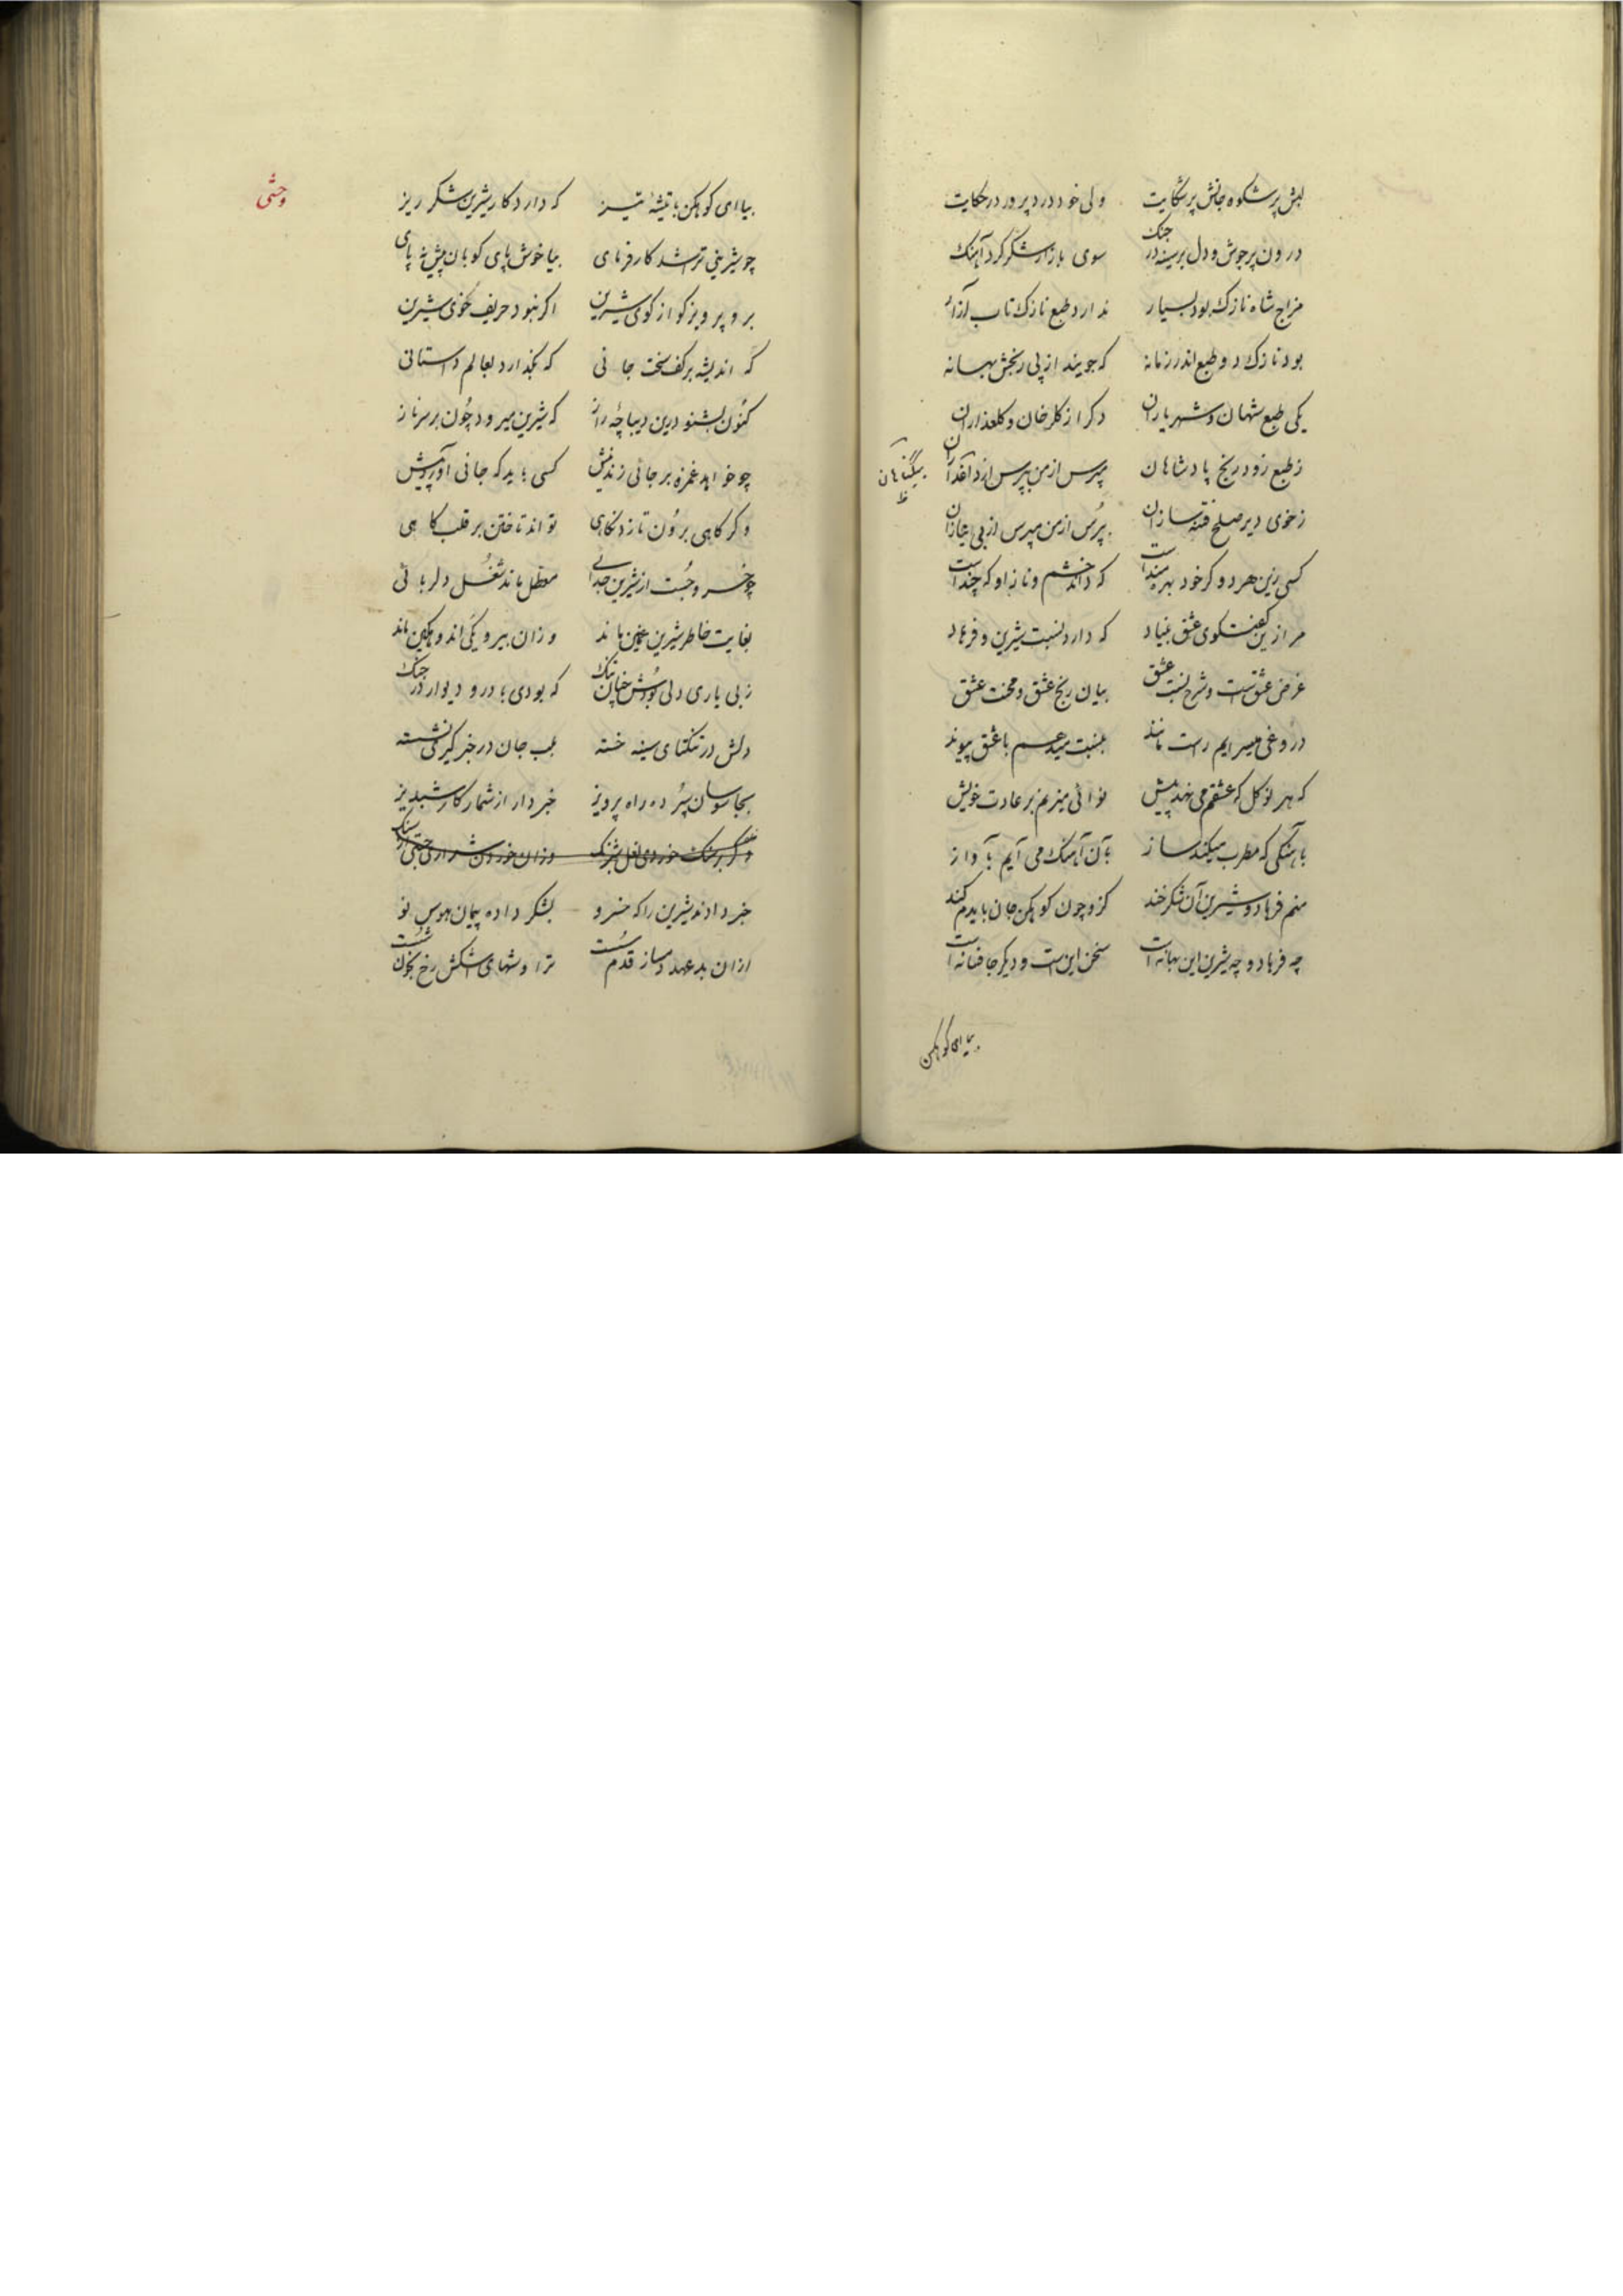 لبش پر شکوه جانش پر شکایت ولی خود درد پرور در حکایت
درون پر جوش و دل بر سینه در جنک سوی بازار شکر کرد آهنک
مزاج شاه نازک بود بسیار ندارد طبع نازک تاب آزار
بود نازک دو طبع اندر زمانه که جویند از پی رنجش بهانه
یکی طبع شهان و شهریاران دکر از کلرخان و کلعذاران
ز طبع زود رنج پادشاهان مپرس از من بپرس از
بیکناهان
ظ
ز خوی دیر صلح فتنه سازان بپرس از من مپرس از بی نیازان
کسی زین هر دو کر خود بهره مندست که داند خشم و ناز او که چندست
مرا زین کفتکوی عشق بنیاد که دارد نسبت شیرین و فرهاد
غرض عشق است و شرح نسبت عشق بیان رنج عشق و محنت عشق
دروغی میسرایم راست مانند بنسبت میدهم با عشق پیوند
که هر نو کل که عشقم می نهد پیش نوائی میزنم بر عادت خویش
باهنکی که مطرب میکند ساز بآن آهنک می آیم بآواز
منم فرهاد و شیرین آن شکرخند کزو چون کوهکن جان بایدم کند
چه فرهاد و چه شیرین این بهانه است سخن این است و دیکر جا فسانه است
بیا ای کوهکن
وحشی
بیا ای کوهکن با تیشهٔ تیز که دارد کار شیرین شکر ریز
چو شیرینی ترا شد کارفرمای بیا خوش پای کوبان پیش نه پای
برو پرویز کو از کوی شیرین اکر نبود حریف خوی شیرین
که اندیشه بر کف سخت جانی که بکذارد بعالم داستانی
کنون بشنو درین دیباچهٔ راز که شیرین میرود چون بر سر ناز
چو خواهد غمزه بر جانی زند نیش کسی باید که جانی آورد پیش
و کر کاهی برون تازد نکاهی تواند تاختن بر قلب کاهی
چو خسرو جست از شیرین جدایی معطل ماند شغل دلربائی
بغایت خاطر شیرین غمین ماند وزان بیرونقی اندوهکین ماند
ز بی یاری دلی بودش چنان تنک که بودی با در و دیوار در جنک
دلش در تنکنای سینه خسته بلب جان در خبرکیری نشسته
بجاسوسان سپرده راه پرویز خبردار از شمار کار شبدیز
و کر بر سنک خوردی نعل شبرنک وزان خوردن شراری جستی از سنک
خبر دادند شیرین را که خسرو بشکر داده پیمان هوس نو
ازان بدعهد دمساز قدم سست تراوشهای اشکش رخ بخون شست